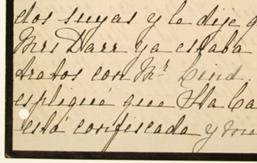 dos suyas y le dije q
Mrs Darr ya estaba
tratos con Mr Lind
espliqué que Ha Ca
está confiscada y me